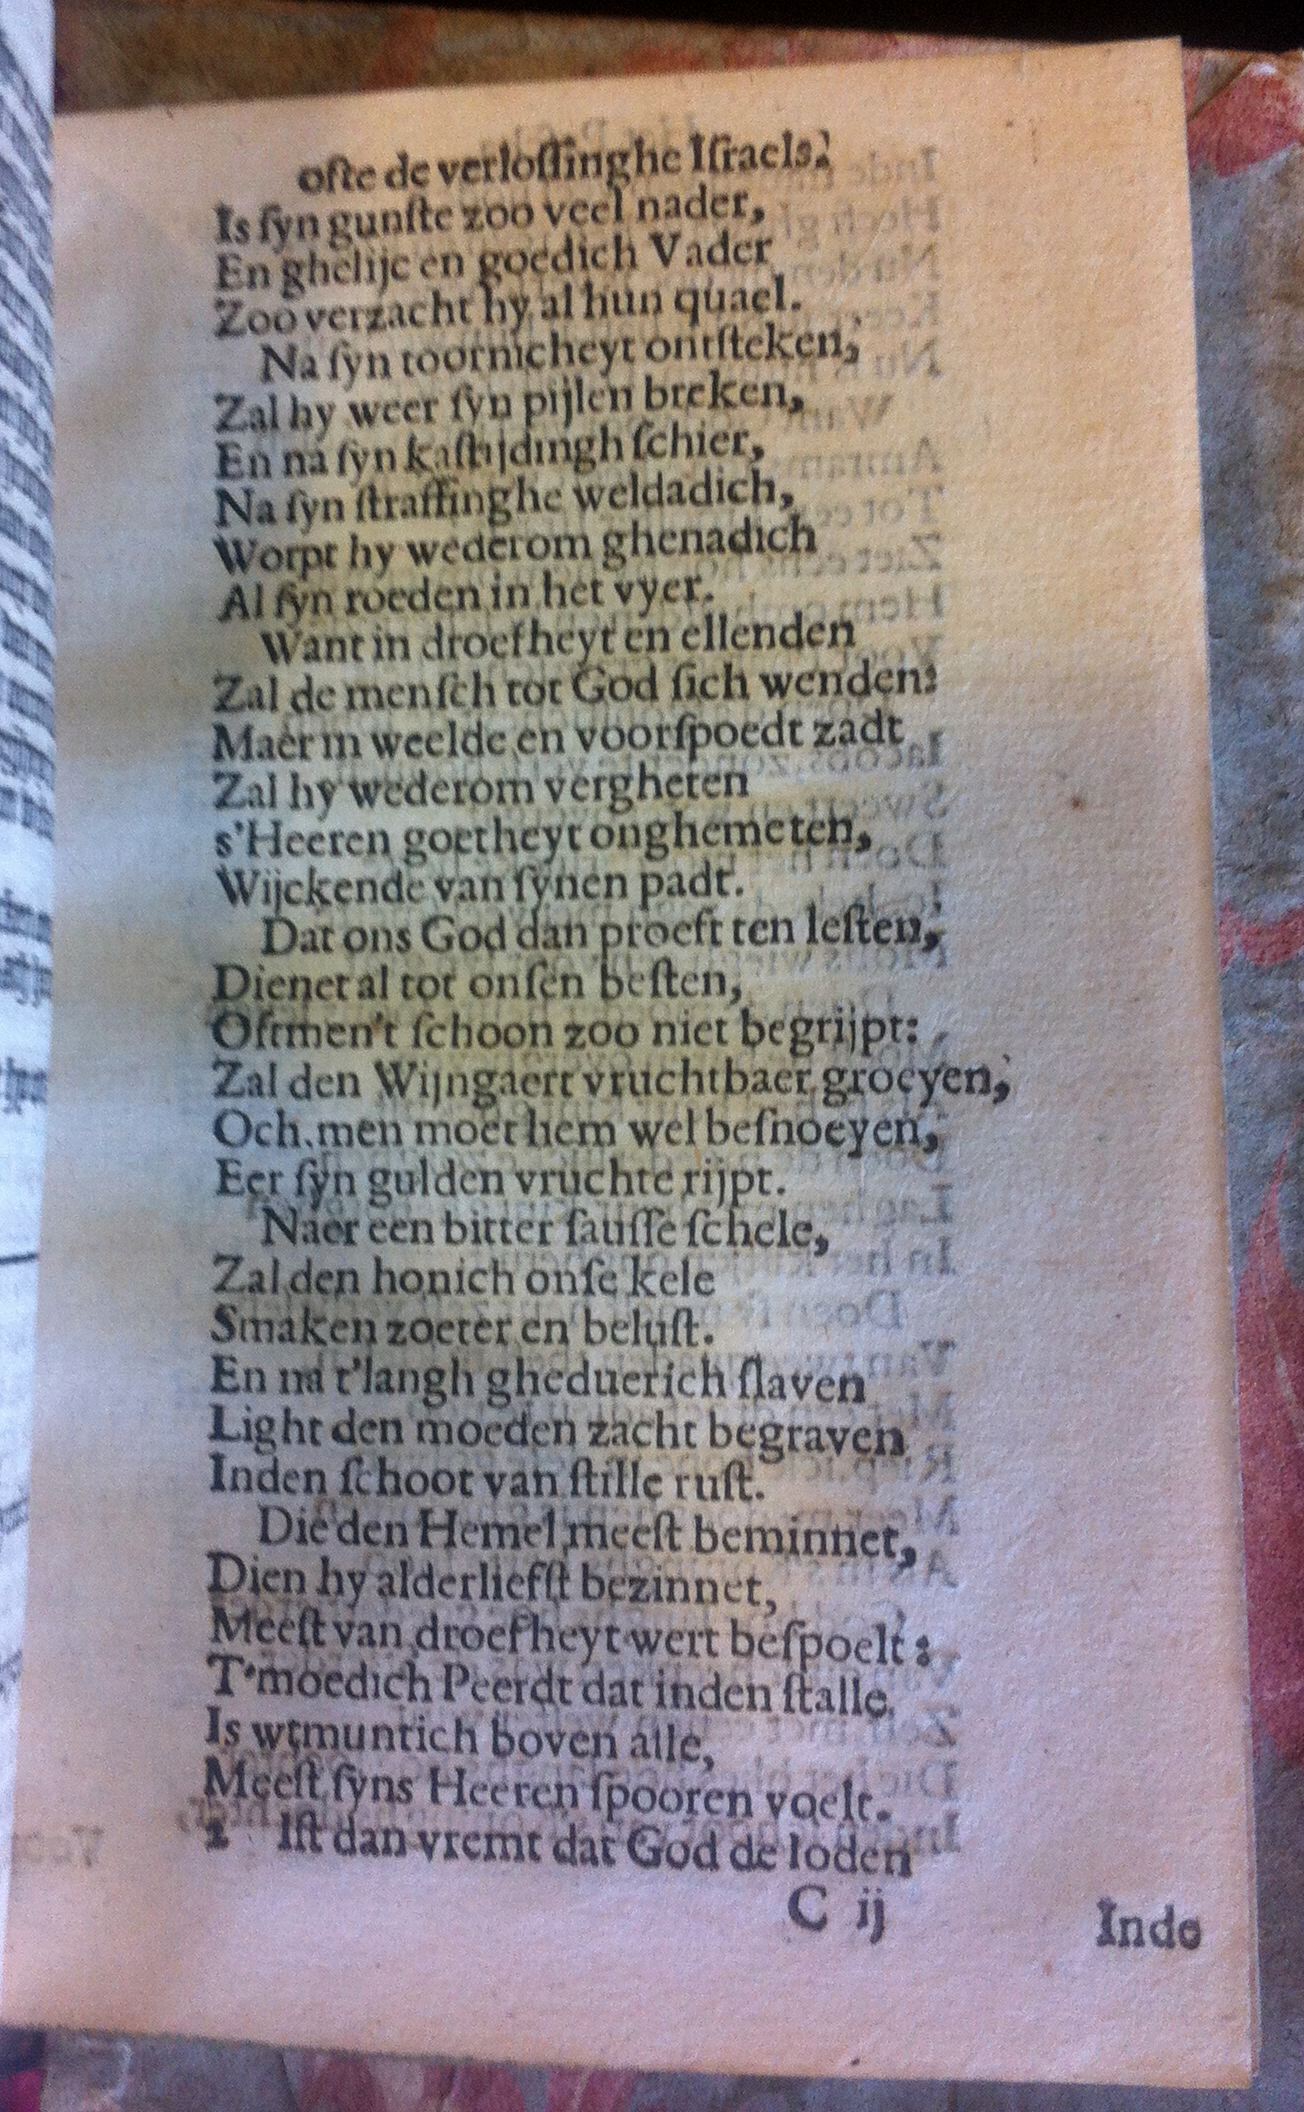 ofte de verlossinghe Israels.
Is syn gunste zoo veel nader,
En ghelijc en goedich Vader
Zoo verzacht hy al hun quael.
Na syn toornicheyt ontsteken,
Zal hy weer syn pijlen breken,
En na syn kastijdingh schier,
Na syn straffinghe weldadich,
Worpt hy wederom ghenadich
Al syn roeden in het vyer.
Want in droefheyt en ellenden
Zal de mensch tot God sich wenden:
Maer in weelde en voorspoedt zadt
Zal hy wederom vergheten
s'Heeren goetheyt onghemeten,
Wijckende van synen padt.
Dat ons God dan proeft ten lesten,
Dienet al tot onsen besten,
Oftmen't schoon zoo niet begrijpt:
Zal den Wijngaert vruchtbaer groeyen,
Och, men moet hem wel besnoeyen,
Eer syn gulden vruchte rijpt.
Naer een bitter sausse schele,
Zal den honich onse kele
Smaken zoeter en belust.
En na t'langh gheduerich slaven
Light den moeden zacht begraven
Inden schoot van stille rust.
Die den Hemel meest beminnet,
Dien hy alderliefst bezinnet,
Meest van droefheyt wert bespoelt:
T'moedich Peerdt dat inden stalle
Is wtmuntich boven alle,
Meest syns Heeren spooren voelt.
2 Ist dan vremt dat God de Ioden
C ij Inde